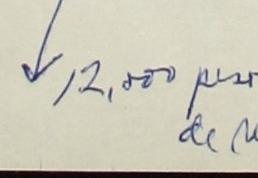 12,000 pesos
de